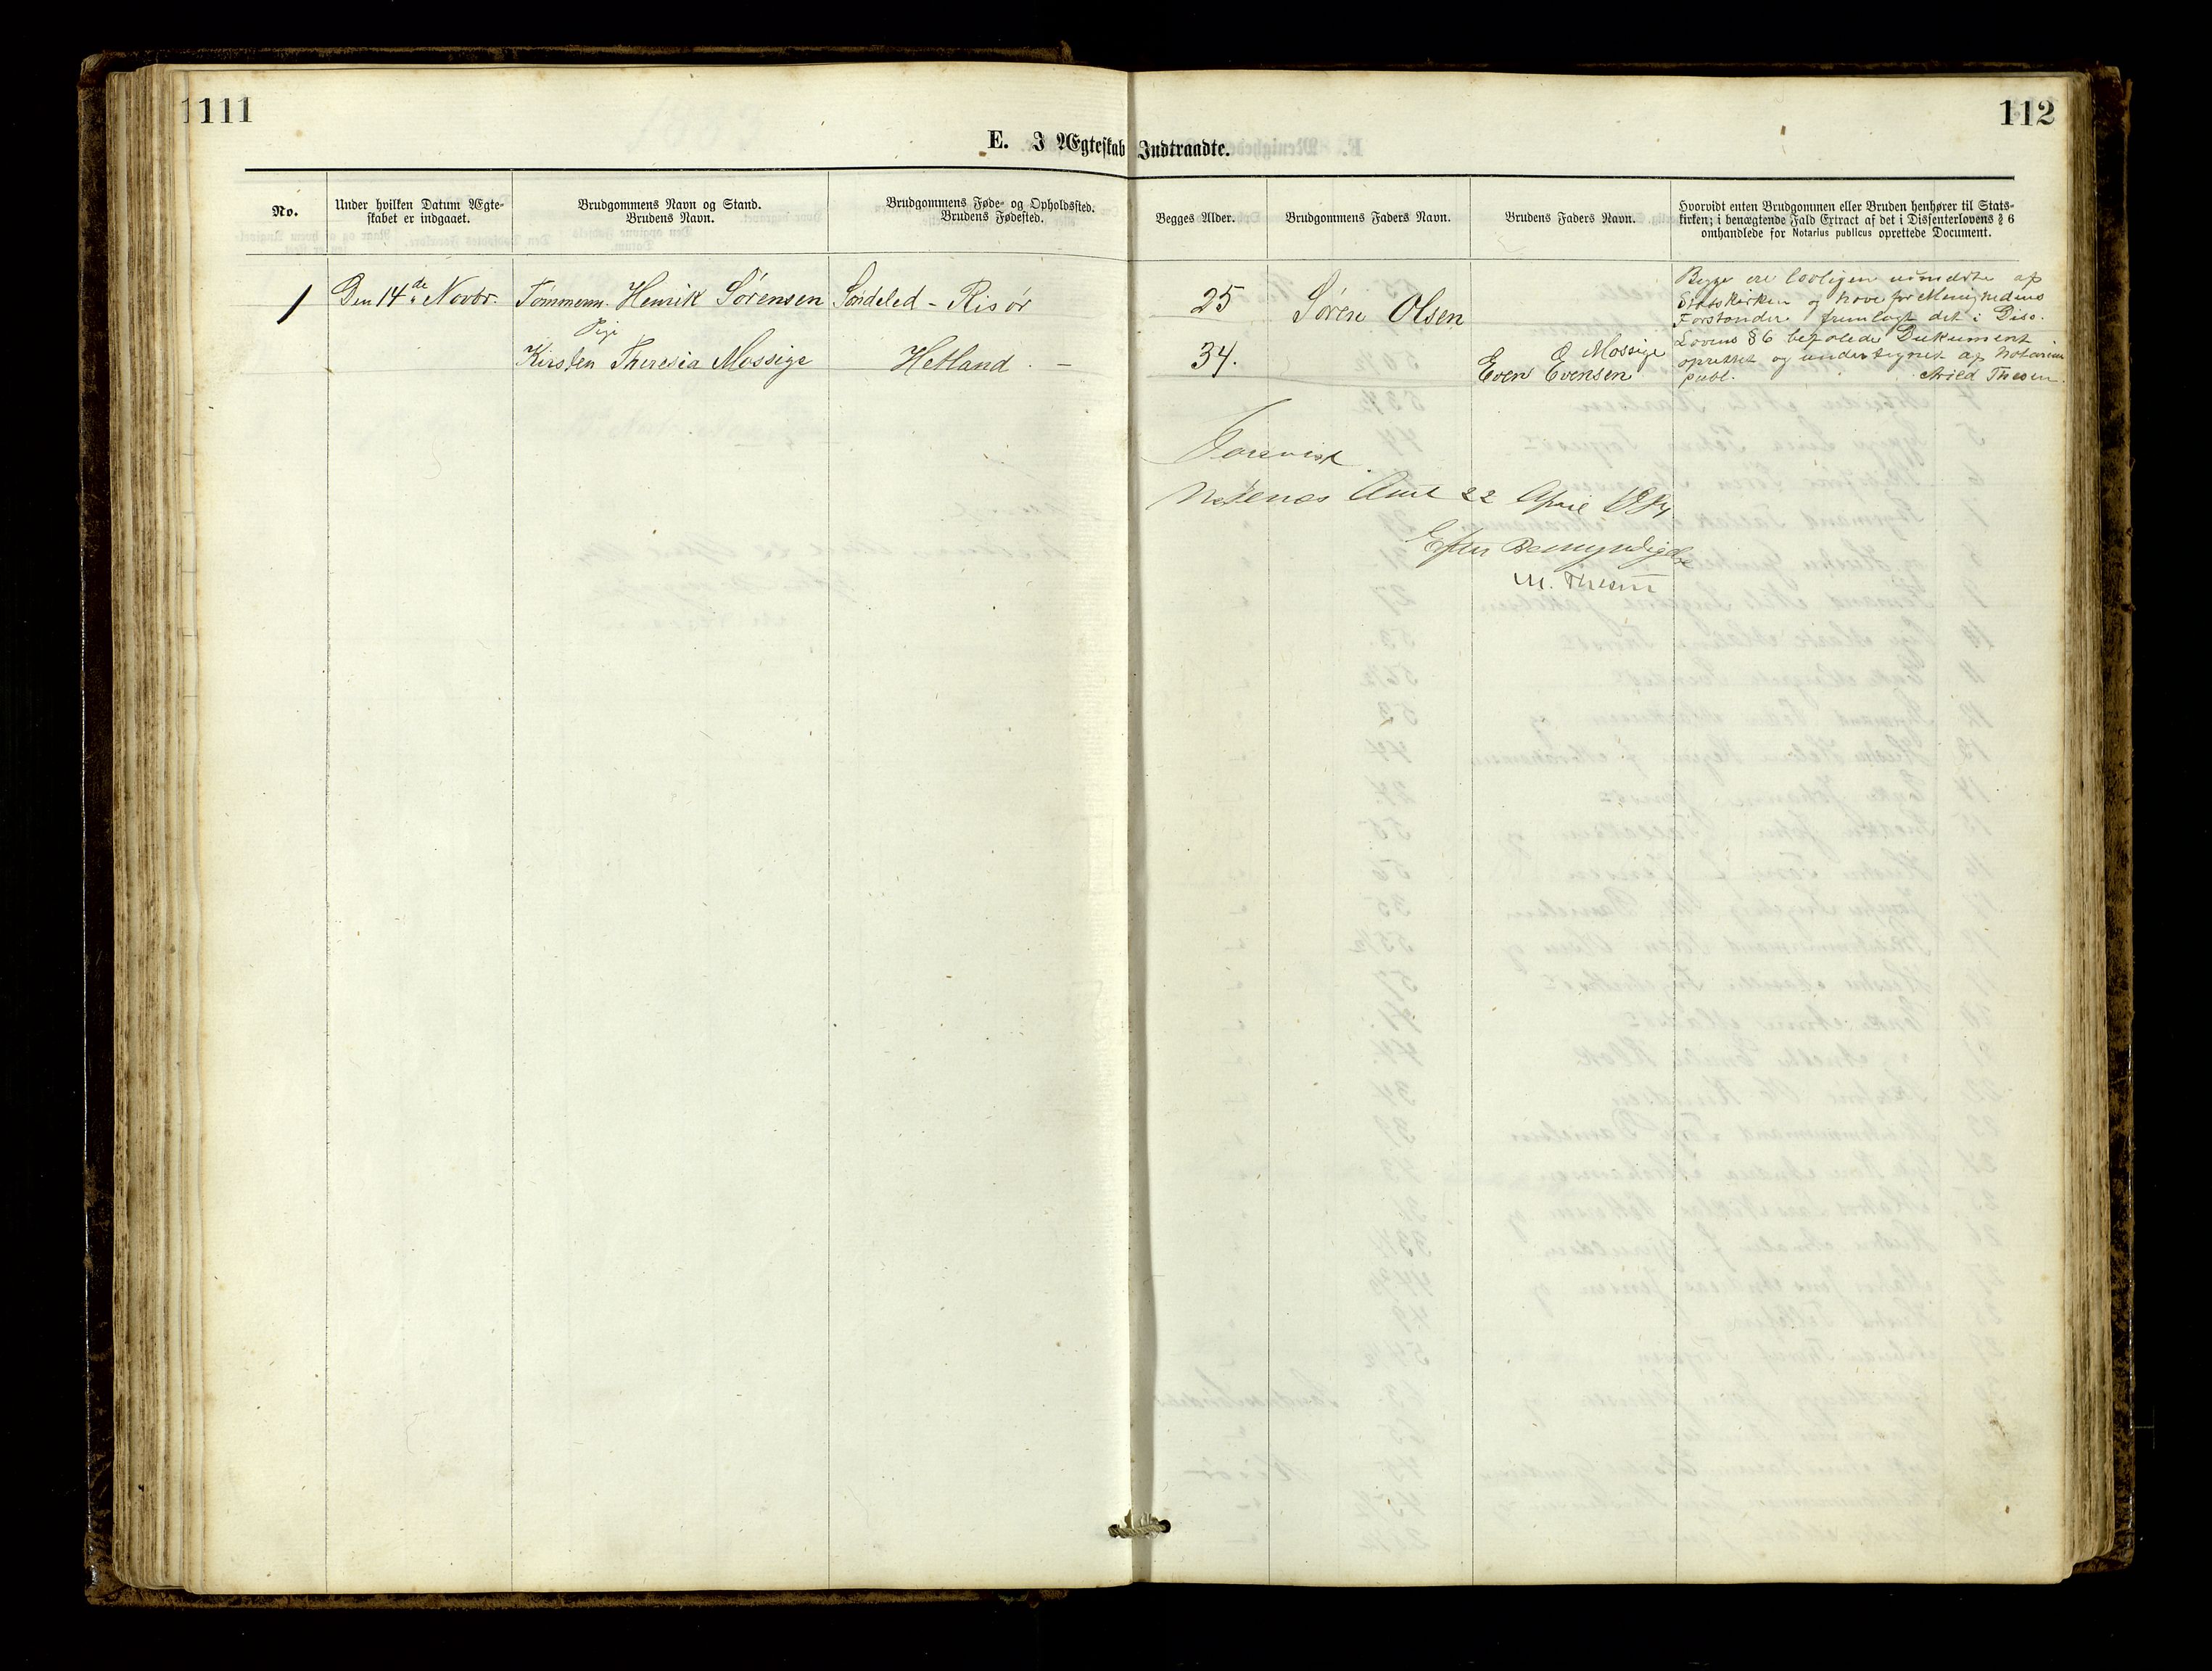 111
112
E. I Ægteskab Indtraadte.
No.
Under hvilken Datum Ægte-
skabet er indgaaet.
Brudgommens Navn og Stand.
Brudens Navn.
Brudgommens Føde- og Opholdssted.
Brudens Fødested.
Begges Alder.
Brudgommens Faders Navn.
Brudens Faders Navn.
Hvorvidt enten Brudgommen eller Bruden henhører til Stats-
kirken; i benægtende Fald Extract af det i Dissenterlovens § 6
omhandlede for Notarius publicus oprettede Document.
1 Den 14de Novbr. Tømmerm. Henrik Sørensen Söndeled - Risør 25 Søren Olsen
Pige
Kirsten Theresia Mossige Hetland - 34. Even Evensen
E Mossige
Begge ere lovligen udmeldte af
Statskirken og have for Menighedens
Forstander fremlagt det i Diss.
Lovens § 6 befalede Dukument
oprettet og undersegnet af Notarius
publ. Arild Thesen.
Forevist
Nedenes Amt 22 April 1884
Efter Bemyndigelse
M. Thesen